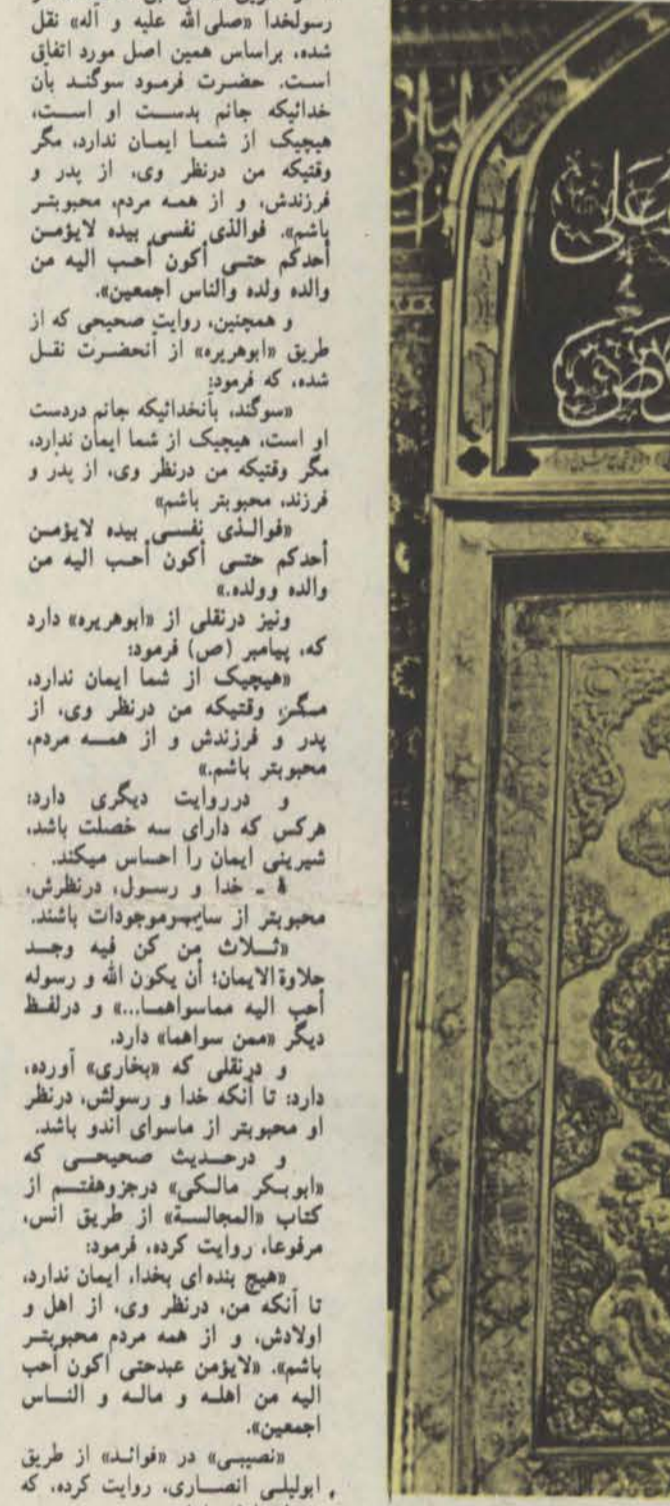 رسولخدا «صلی‌الله علیه و آله» نقل
شده، براساس همین اصل مورد اتفاق
است. حضرت فرمود سوگند بآن
خدائیکه جانم بدست او است،
هیچیک از شما ایمان ندارد، مگر
وقتیکه من درنظر وی، از پدر و
فرزندش، و از همه مردم، محبوبتر
باشم». فوالذی نفسی بیده لایؤمن
أحدکم حتی أکون أحب الیه من
والده ولده والناس اجمعین».
و همچنین، روایت صحیحی که از
طریق «ابوهریره» از آنحضرت نقل
شده، که فرمود:
«سوگند، بآنخدائیکه جانم دردست
او است، هیچیک از شما ایمان ندارد،
مگر وقتیکه من درنظر وی، از پدر و
فرزند، محبوبتر باشم»
«فوالذی نفسی بیده لایؤمن
أحدکم حتی أکون أحب الیه من
والده وولده.»
ونیز درنقلی از «ابوهریره» دارد
که، پیامبر (ص) فرمود:
«هیچیک از شما ایمان ندارد،
مگر وقتیکه من درنظر وی، از
پدر و فرزندش و از همه مردم،
محبوبتر باشم.»
و درروایت دیگری دارد:
هرکس که دارای سه خصلت باشد،
شیرینی ایمان را احساس میکند.
۱ - خدا و رسول، درنظرش،
محبوبتر از سایرموجودات باشند.
«ثلاث من کن فیه وجد
حلاوةالایمان: أن یکون الله و رسوله
أحب الیه مماسواهما...» و درلفظ
دیگر «ممن سواهما» دارد.
و درنقلی که «بخاری» آورده،
دارد: تا آنکه خدا و رسولش، درنظر
او محبوبتر از ماسوای اندو باشد.
و درحدیث صحیحی که
«ابوبکر مالکی» درجزوهفتم از
کتاب «المجالسة» از طریق انس،
مرفوعا، روایت کرده، فرمود:
«هیچ بنده‌ای بخدا، ایمان ندارد،
تا آنکه من، درنظر وی، از اهل و
اولادش، و از همه مردم محبوبتر
باشم». «لایؤمن عبدحتی اکون أحب
الیه من اهله و ماله و الناس
اجمعین».
«نصیبی» در «فوائد» از طریق
ابولیلی انصاری، روایت کرده، که